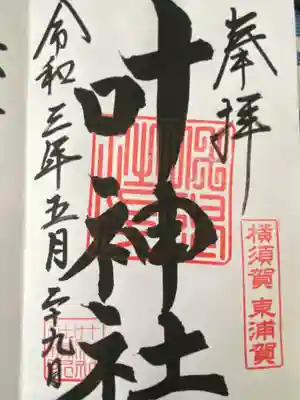 奉拝
横須賀 東浦賀
叶神社
令和三年五月二十九日